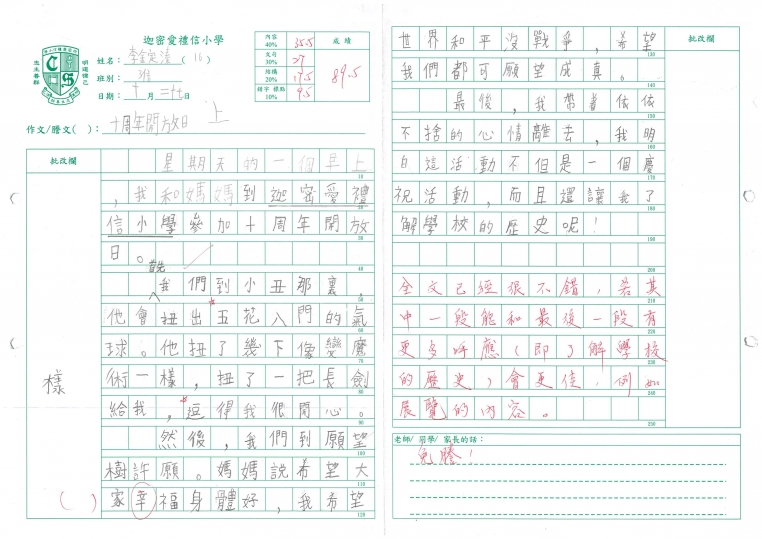 迦密愛禮信小學
姓名： ( 16 )
班別： 班
日期：十月二十七日
內容 40% 35.5
文句 30% 27
結構 20% 17.5
錯字 標點 10% 9.5
成績
89.5
作文/謄文( )： 十周年開放日 上
批改欄
星期天的一個早上
，我和媽媽到迦密愛禮
信小學參加十周年開放
日。
首先
我們到小丑那裏，
他會扭出五花入門的氣
球。他扭了幾下像變魔
術一樣，扭了一把長劍
給我，逗得我很開心。
然後，我們到願望
樹許願。媽媽說希望大
家幸福身體好，我希望
樣
( )
批改欄
世界和平沒戰爭，希望
我們都可願望成真。
最後，我帶着依依
不捨的心情離去，我明
白這活動不但是一個慶
祝活動，而且還讓我了
解學校的歷史呢！
全文已經很不錯，若其
中一段能和最後一段有
更多呼應（即了解學校
的歷史）會更佳，例如
展覽的內容。
老師/ 同學/ 家長的話：
免謄！